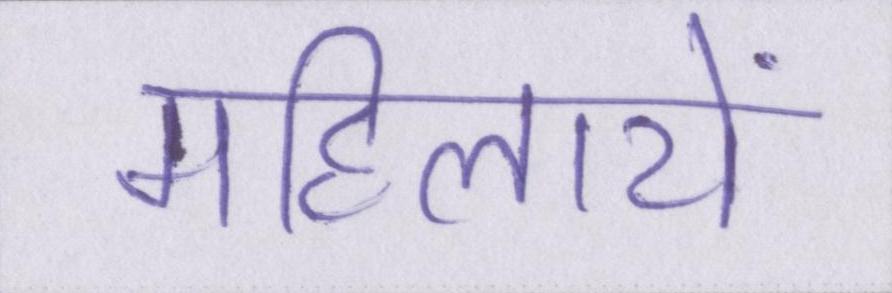 महिलायें